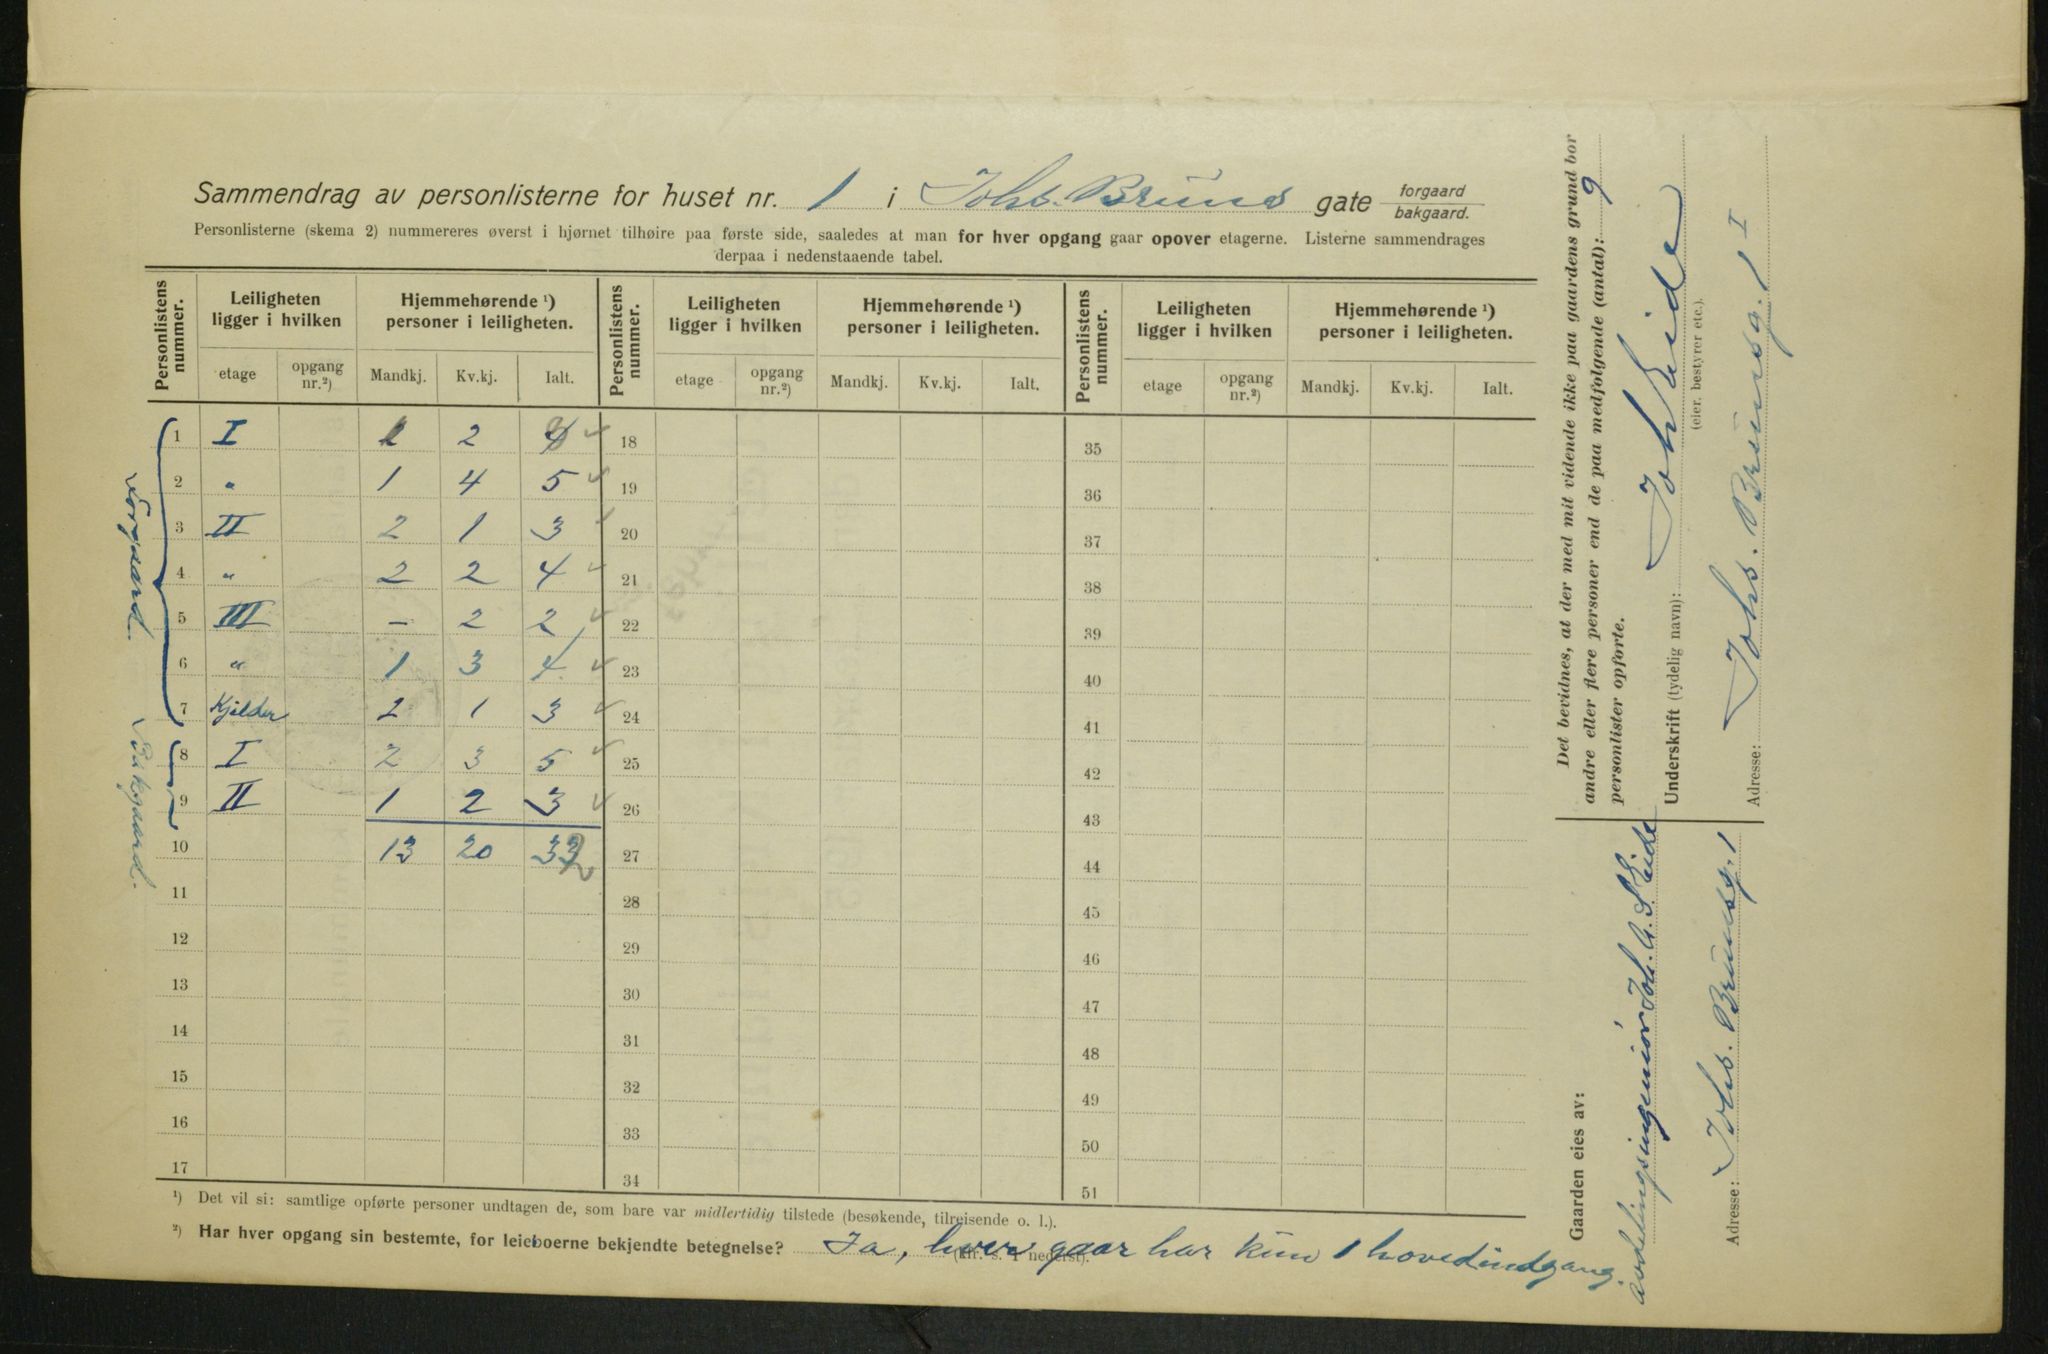 Sammendrag av personlisterne for huset nr. 1 i Johs. Bruns gate forgaard bakgaard.
Personlisterne (skema 2) nummereres øverst i hjørnet tilhøire paa første side, saaledes at man for hver opgang gaar opover etagerne. Listerne sammendrages
derpaa i nedenstaaende tabel.
Personlistens nummer. Leiligheten ligger i hvilken Hjemmehørende ¹) personer i leiligheten. Personlistens nummer. Leiligheten ligger i hvilken Hjemmehørende ¹) personer i leiligheten. Personlistens nummer. Leiligheten ligger i hvilken Hjemmehørende ¹) personer i leiligheten.
etage opgang nr.²) Mandkj. Kv.kj. Ialt. etage opgang nr.²) Mandkj. Kv.kj. Ialt. etage opgang nr.²) Mandkj. Kv.kj. Ialt.
Forgaard.
1 I 2 18 35
2 " 1 4 5 19 36
3 II 2 1 3 20 37
4 " 2 2 4 21 38
5 III – 2 2 22 39
6 " 1 3 4 23 40
7 Kjelder 2 1 3 24 41
Bakgaard.
8 I 2 3 5 25 42
9 II 1 2 3 26 43
10 13 20 27 44
11 28 45
12 29 46
13 30 47
14 31 48
15 32 49
16 33 50
17 34 51
¹) Det vil si: samtlige opførte personer undtagen de, som bare var midlertidig tilstede (besøkende, tilreisende o. l.).
²) Har hver opgang sin bestemte, for leieboerne bekjendte betegnelse? Ja, hver gaar har kun 1 hovedindgang.
(kfr. s. 1 nederst).
Det bevidnes, at der med mit vidende ikke paa gaardens grund bor
andre eller flere personer end de paa medfølgende (antal): 9
personlister opførte.
Underskrift (tydelig navn): Joh Eide
(eier, bestyrer etc.).
Adresse: Johs. Brunsg. 1 I
Gaarden eies av:
avdelingsingeniør Joh. A. Eide
Adresse: Johs. Brunsg. 1